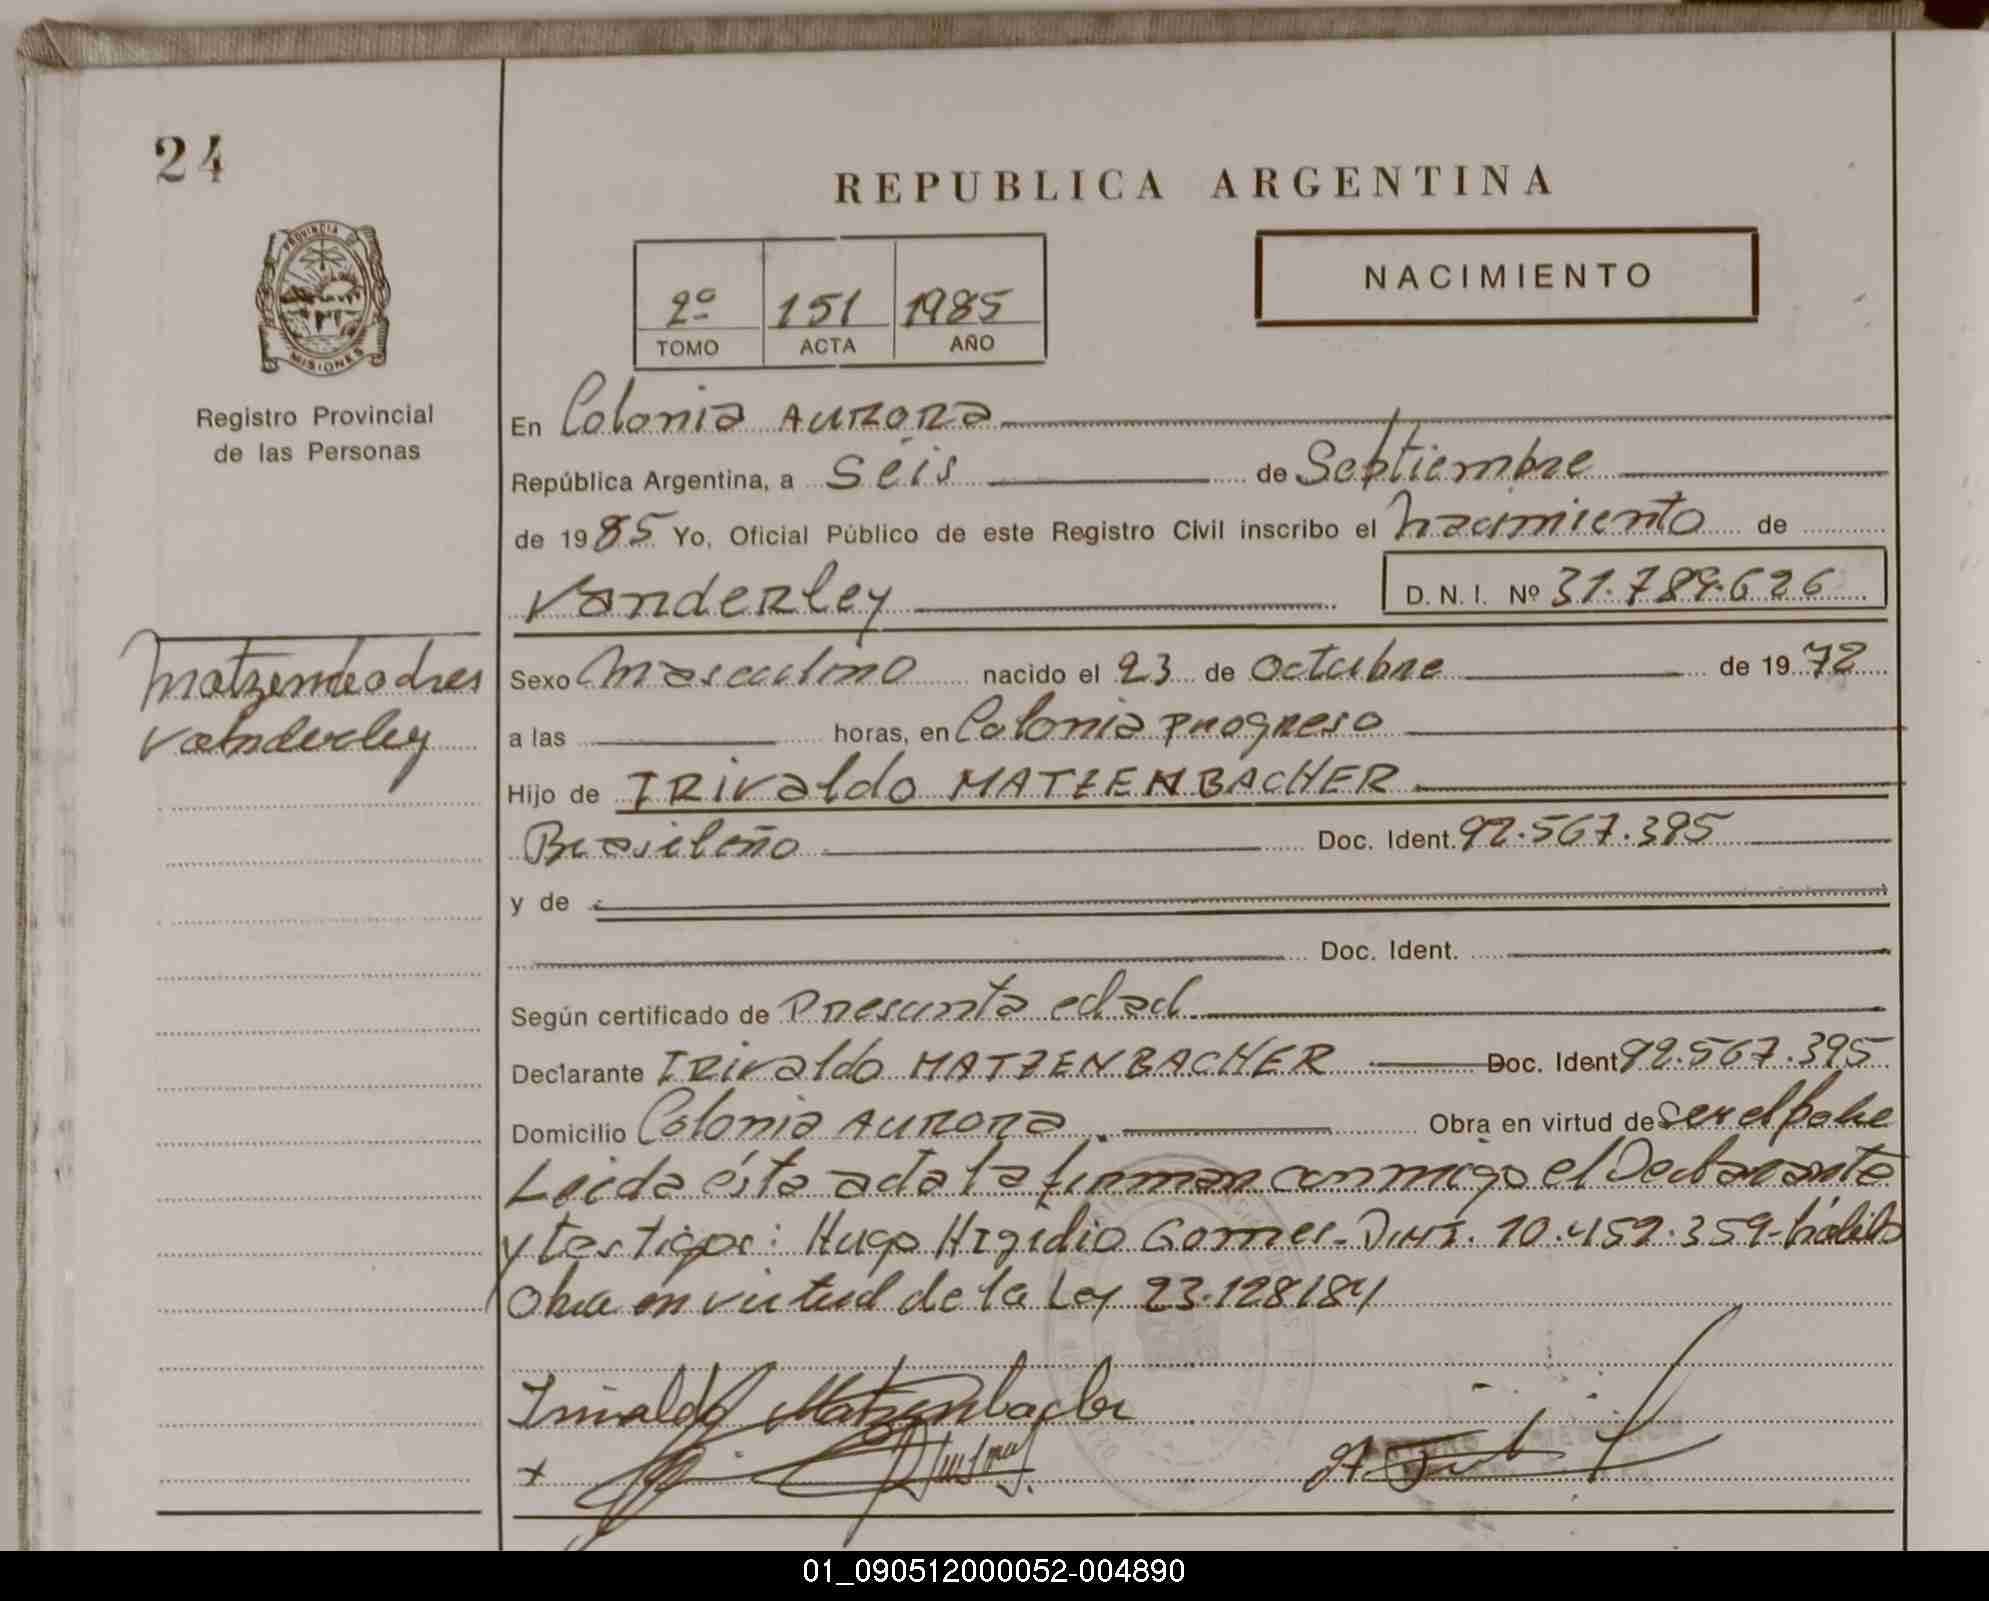 24
REPUBLICA ARGENTINA
PROVINCIA DE
MISIONES
Registro Provincial
de las Personas
2º 151 1985
TOMO ACTA AÑO
NACIMIENTO
En Colonia Aurora
República Argentina, a Seis de Septiembre
de 1985 Yo, Oficial Público de este Registro Civil inscribo el nacimiento de
Vanderley D. N. I. Nº 31.789.626
Vanderley
Sexo Masculino nacido el 23 de Octubre de 1972
a las horas, en Colonia Progreso
Hijo de IRIVALDO MATZENBACHER
Brasileño Doc. Ident. 92.567.395
y de
Doc. Ident.
Según certificado de Presunta edad
Declarante IRIVALDO MATZENBACHER Doc. Ident 92.567.395
Domicilio Colonia Aurora. Obra en virtud de Ser el padre
Leida ésta acta la firman conmigo el Declarante
y testigos: Hugo Higidio Gomes - D.N.I. 10.459.359 - hábil
Obra en virtud de la Ley 23.128/84
Irivaldo Matzenbacher
01_090512000052-004890